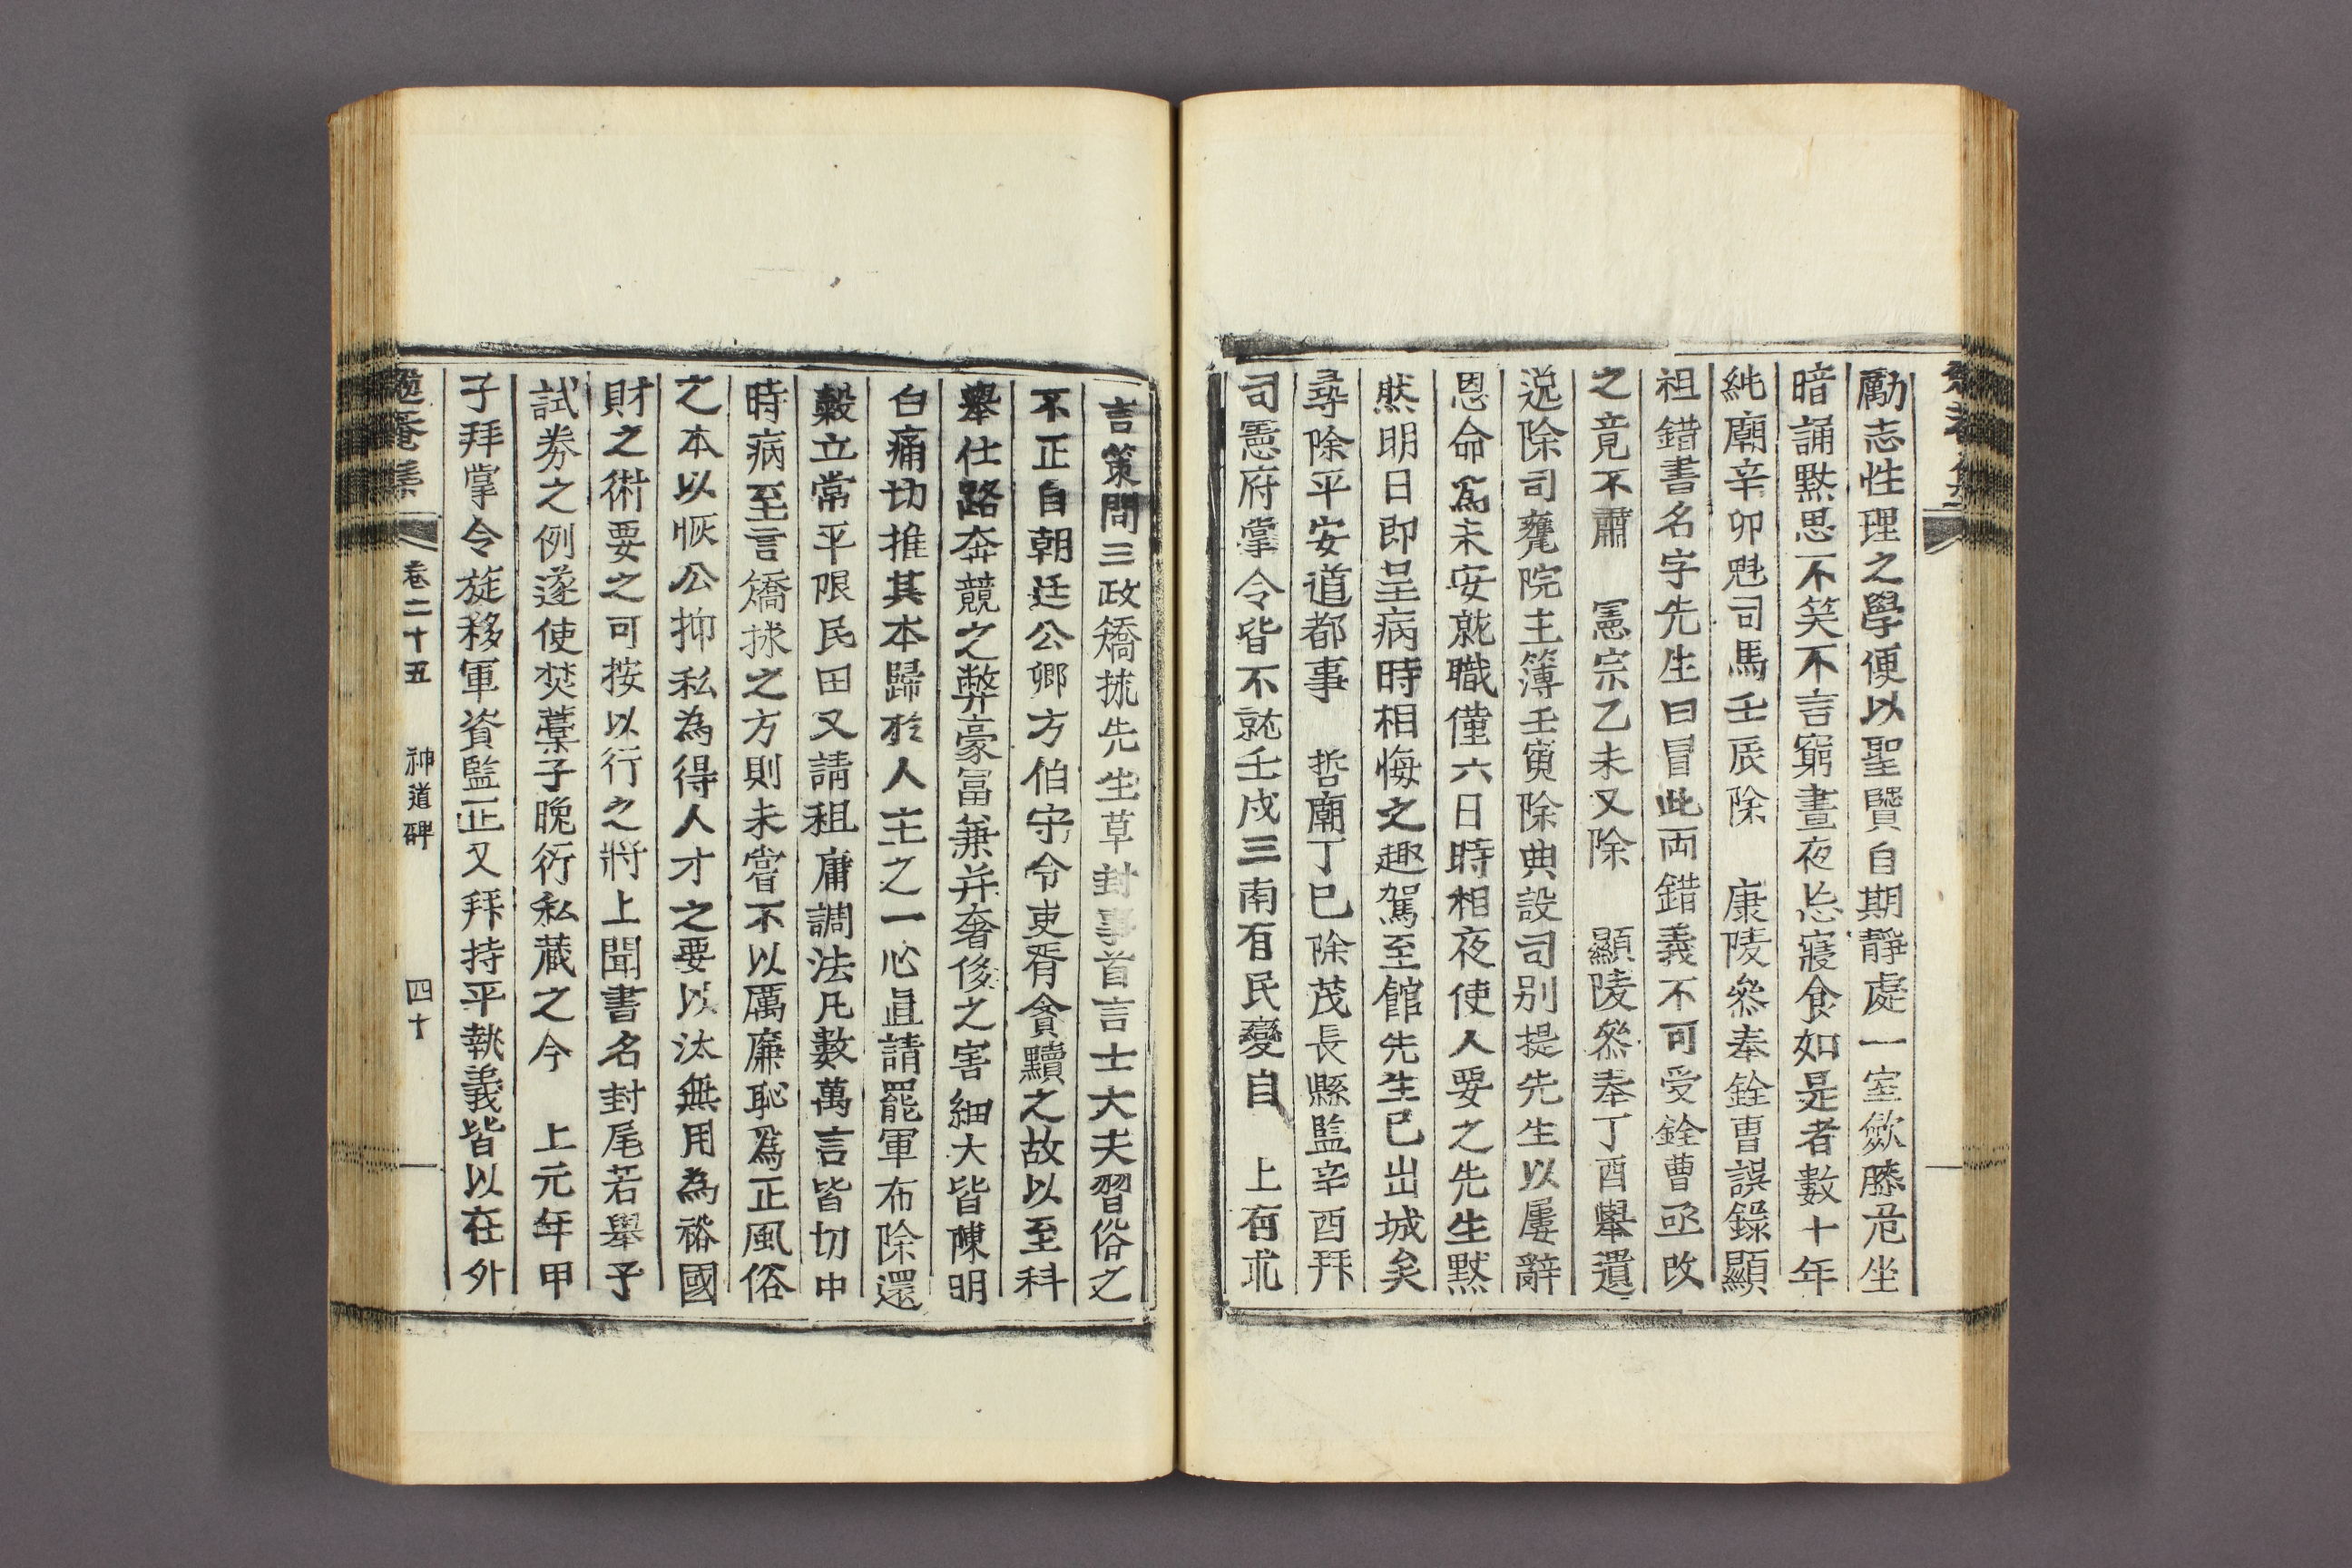 勵志性理之學便以聖賢自期靜處一室斂膝危坐
暗誦默思不笑不言窮晝夜忘寢食如是者數十年
純廟辛卯魁司馬壬辰除　康陵叅奉銓曹誤錄顯
祖錯書名字先生曰冒此両錯義不可受銓曹亟改
之竟不肅　憲宗乙未又除　顯陵叅奉丁酉擧遺
逸除司饔院主簿壬寅除典設司別提先生以屢辭
恩命爲未安就職僅六日時相夜使人要之先生默
然明日即呈病時相悔之趣駕至館先生已出城矣
尋除平安道都事　哲廟丁巳除茂長縣監辛酉拜
司憲府掌令皆不就壬戌三南有民變自　上有求
言策問三政矯捄先生草封事首言士大夫習俗之
不正自朝廷公卿方伯守令吏胥貪黷之故以至科
擧仕路奔競之弊豪冨兼并奢侈之害細大皆陳明
白痛切推其本歸於人主之一心直請罷軍布除還
穀立常平限民田又請租庸調法凡數萬言皆切中
時病至言矯捄之方則未嘗不以厲廉恥爲正風俗
之本以恢公抑私為得人才之要以汰無用為裕國
財之術要之可按以行之將上聞書名封尾若擧子
試券之例遂使焚藁子晩衍私藏之今　上元年甲
子拜掌令旋移軍資監正又拜持平執義皆以在外
卷二十五　神道碑　四十